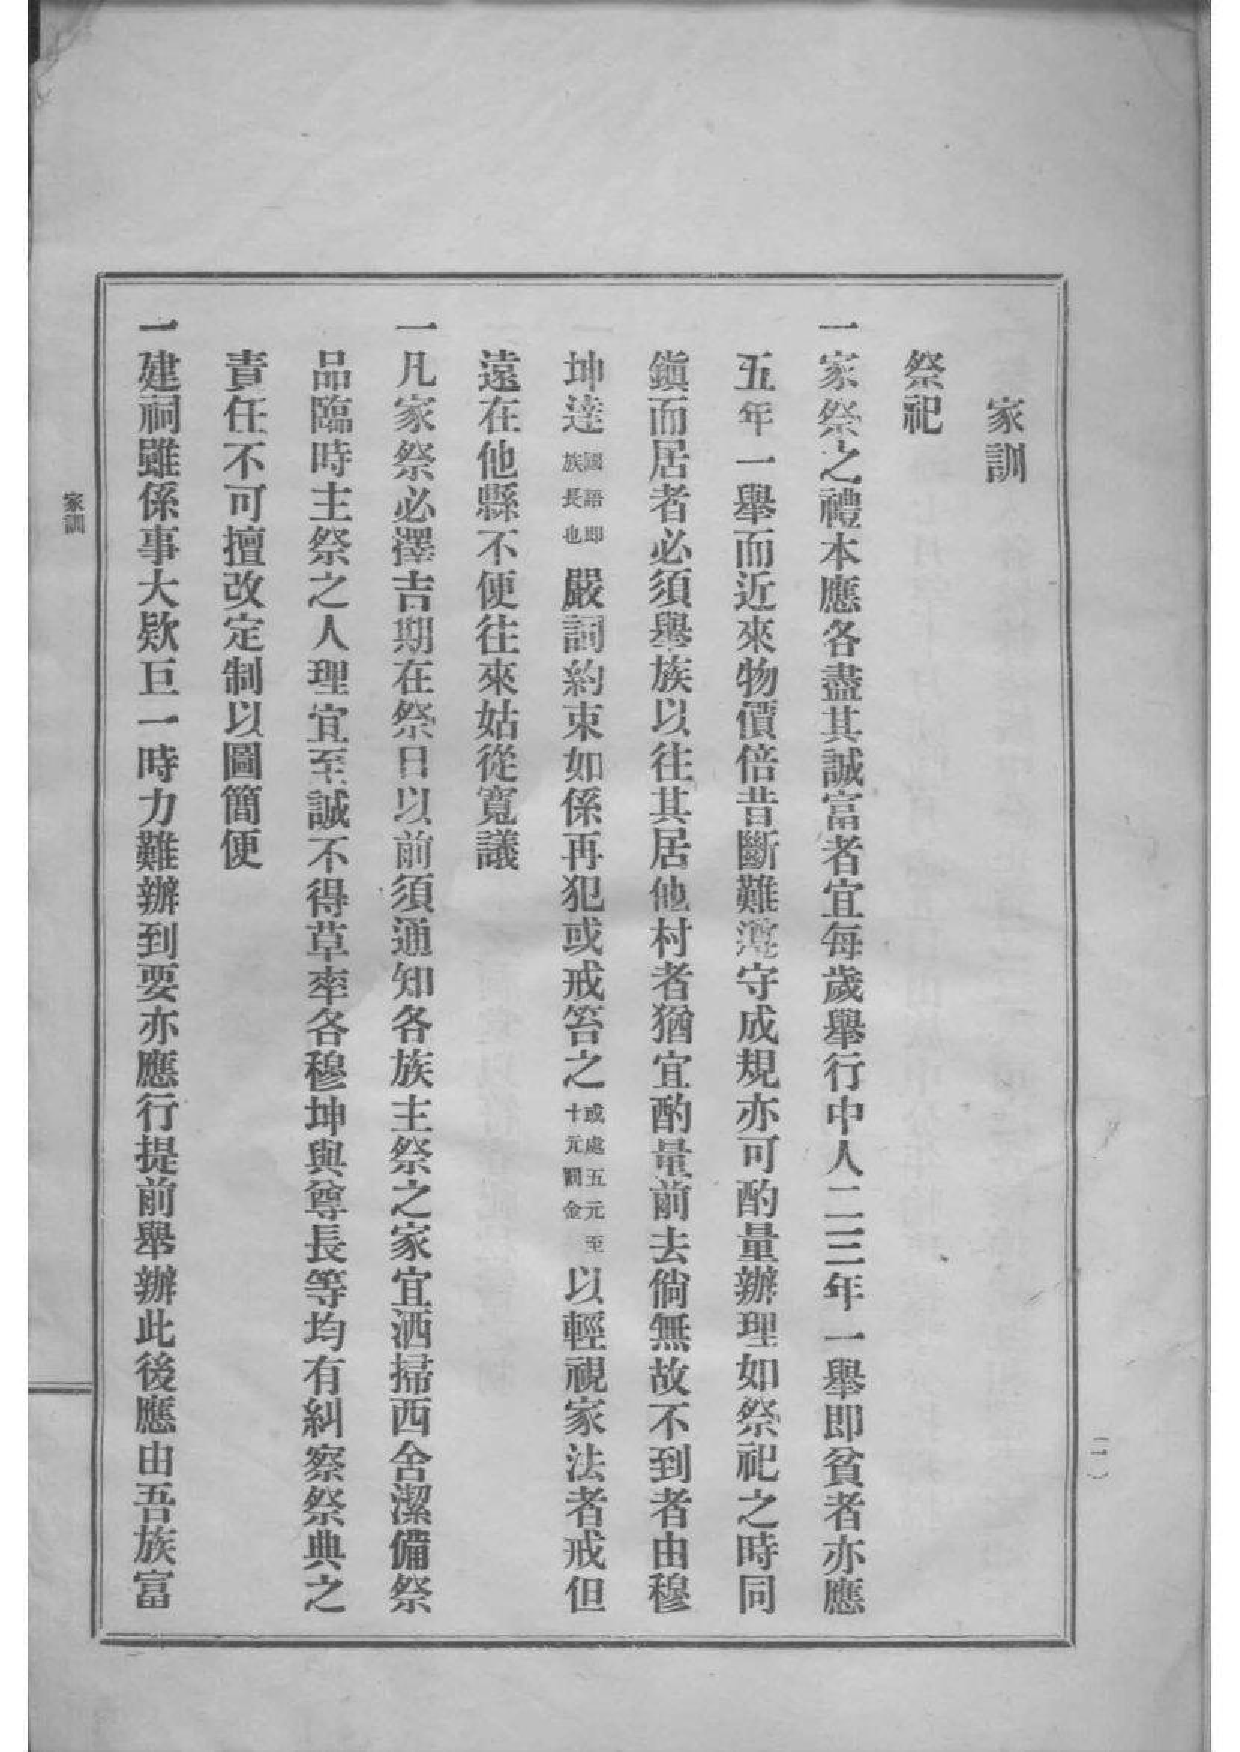 家訓
祭祀
一家祭之禮本應各盡其誠富者宜每歲舉行中人二三年一舉即貧者亦應
五年一舉而近來物價倍昔斷難遵守成規亦可酌量辦理如祭祀之時同
鎭而居者必須舉族以往其居他村者猶宜酌量前去倘無故不到者由穆
坤達國語即族長也嚴詞約束如係再犯或戒笞之或處五元至十元罰金以輕視家法者戒但
遠在他縣不便往來姑從寬議
一凡家祭必擇吉期在祭日以前須通知各族主祭之家宜洒掃西舍潔備祭
品臨時主祭之人理宜至誠不得草率各穆坤與尊長等均有糾察祭典之
責任不可擅改定制以圖簡便
一建祠雖係事大欵巨一時力難辦到要亦應行提前舉辦此後應由吾族富
家訓
(一)